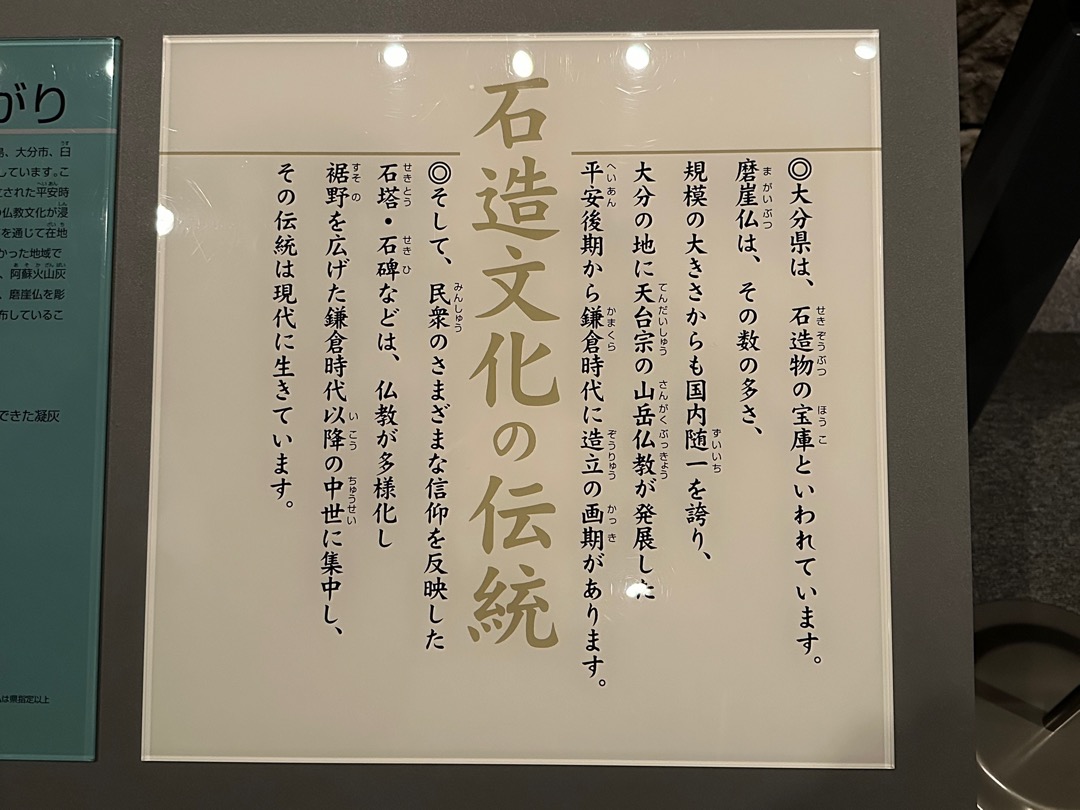 ◎大分県は、石造物の宝庫といわれています。
磨崖仏は、その数の多さ、
規模の大きさからも国内随一を誇り、
大分の地に天台宗の山岳仏教が発展した
平安後期から鎌倉時代に造立の画期があります。
石造文化の伝統
◎そして、民衆のさまざまな信仰を反映した
石塔・石碑などは、仏教が多様化し
裾野を広げた鎌倉時代以降の中世に集中し、
その伝統は現代に生きています。
がり
、大分市、臼
しています。こ
された平安時
仏教文化が浸
を通じて在地
かった地域で
、阿蘇火山灰
、磨崖仏を彫
布しているこ
できた凝灰
は県指定以上